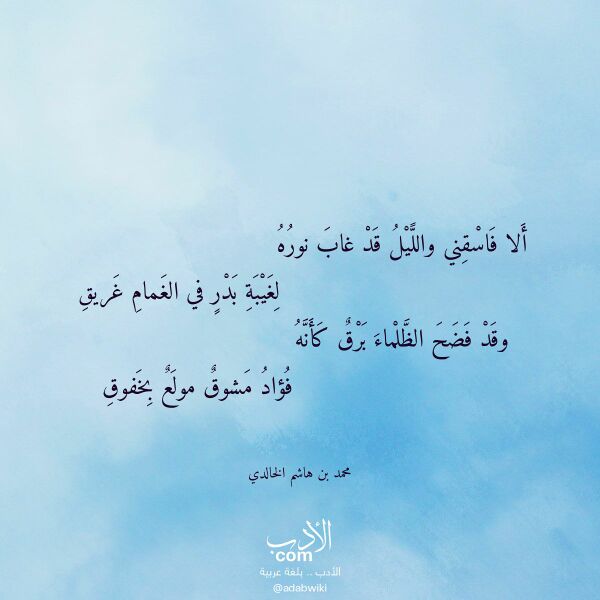 أَلا فَاسْقِني واللَّيْلُ قَدْ غابَ نورُهُ
لِغَيْبَةِ بَدْرٍ في الغَمامِ غَريقِ
وقَدْ فَضَحَ الظَّلْماءَ بَرْقٌ كَأَنَّهُ
فُؤادُ مَشوقٌ مولَعٌ بِخَفوقِ
محمد بن هاشم الخالدي
الأدب
com
الأدب .. بلغة عربية
@adabwiki